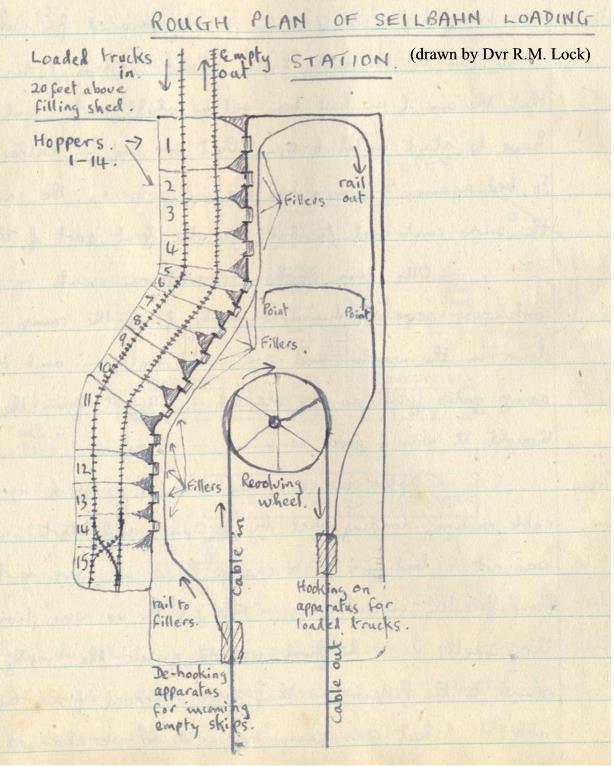 ROUGH PLAN OF SEILBAHN LOADING
STATION.
(drawn by Dvr R.M. Lock)
Loaded trucks
in.
20 feet above
filling shed.
Empty
out
Hoppers.
1-14.
2
3
4
5
6
7
8
9
10
11
12
13
14
15
rail
out
Fillers
Point
Point
Fillers
Revolving
wheel.
Fillers
Cable in
rail to
fillers.
Hooking on
apparatus for
loaded trucks.
De-hooking
apparatus
for incoming
empty skips.
Cable out